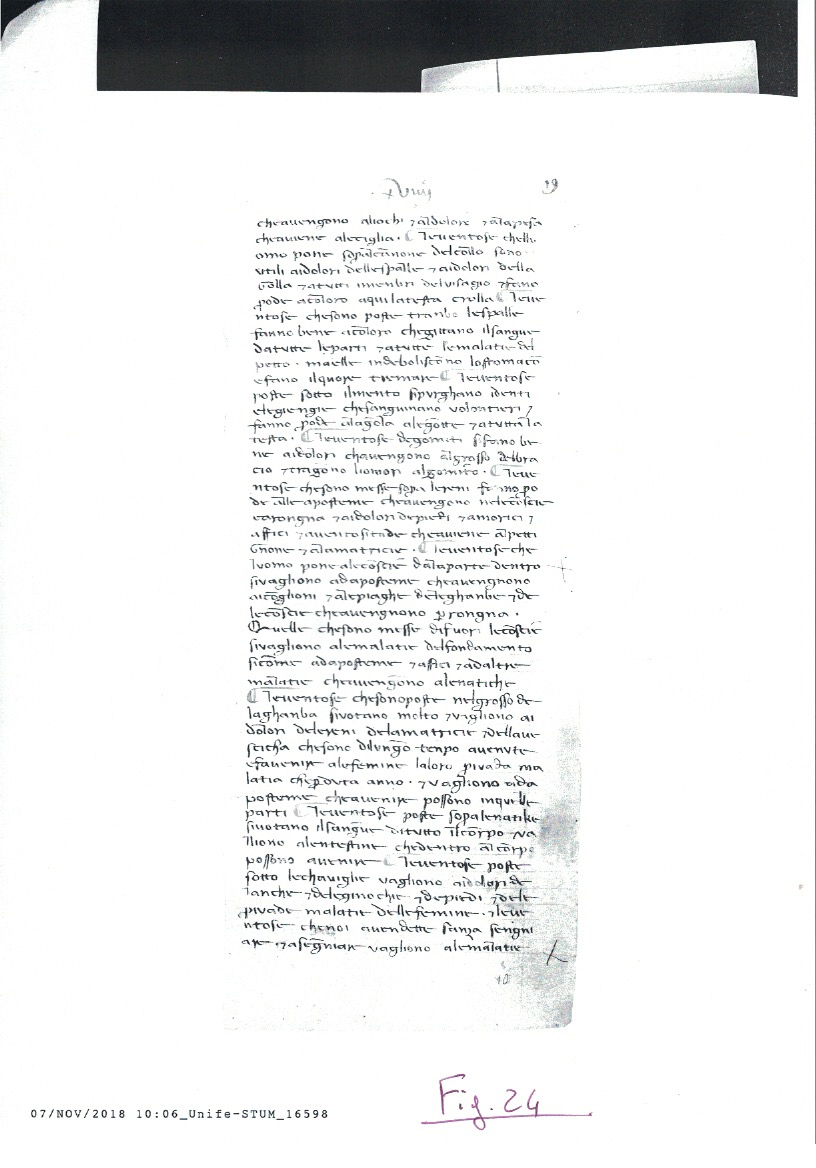 xviiij
19
cheavengono aliochi ⁊ aldolore ⁊ alapesa
cheaviene aleciglia. leventose chelli
omo pone sopalcannone delcollo sono
utili aidolori dellespalle ⁊ aidolori della
Golla ⁊ atutti imenbri delvisagio ⁊ fano
pode acoloro aquilatesta crolla leve
ntose chesono poste tranbe lespalle
fanno bene acoloro chegittano ilsangue
datutte leparti ⁊ atutte lemalatie del
petto. maelle indeboliscono lostomaco
efano ilquore tremare leventose
poste sotto ilmento sipurghano identi
elegiengie chesanguinano volentieri ⁊
fanno pode alagola alegotte ⁊ atutta la
testa. leventose degomiti sifano be
ne aidolori chavengono algrosso delbra
cio ⁊ tragono liomori algomito. leve
ntose chesono messe sopa lereni fano po
de alle aposteme cheavengono nelecoscie
erongna ⁊ aidolori depiedi ⁊ amorici ⁊
affici ⁊ aventositade cheaviene alpetti
Gnone ⁊ alamatricie. leventose che
luomo pone alecoscie dalaparte dentro
sivagliono adaposteme cheavengnono
aicoglioni ⁊ alepiaghe deleghanbe ⁊ de
lecoscie cheavengnono prongna.
Quelle chesono messe difuori lecoscie
sivagliono alemalatie delfondamento
sicome adaposteme ⁊ affici ⁊ adaltre
malatie cheavengono alenatiche
leventose chesonoposte nelgrosso de
laghanba sivotano molto ⁊ vagliono ai
dolori delereni delamatricie ⁊ dellave
scicha chesono dilungo tenpo avenute
efavenire alefemine laloro pivada ma
latia cheperduta anno. ⁊ vagliono ada
posteme cheavenire possono inquelle
parti leventose poste sopalenatike
sivotano ilsangue ditutto ilcorpo ⁊ va
lliono alentestine chedentro alcorpo
possono avenire leventose poste
sotto lechaviglie vagliono aidolori de
lanche ⁊ deleginochie ⁊ depiedi ⁊ dele
pivade malatie dellefemine. ⁊ leve
ntose chenoi avendette sanza sengni
are ⁊ asegniare vagliono alemalatie
07/NOV/2018 10:06_Unife-STUM_16598
Fig. 24